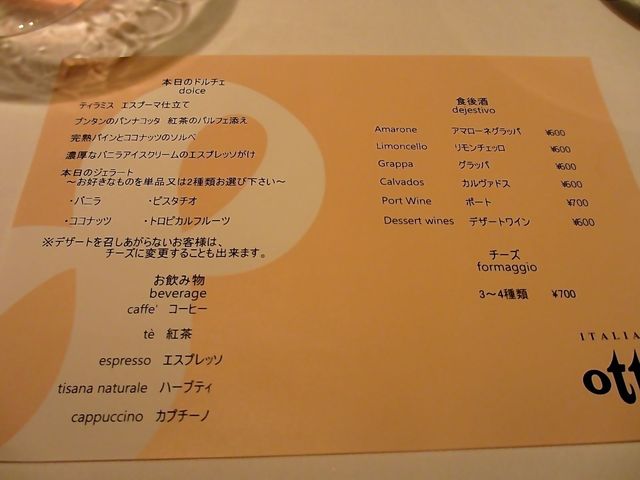 本日のドルチェ
dolce
ティラミス エスプーマ仕立て
ブンタンのパンナコッタ 紅茶のパルフェ添え
完熟パインとココナッツのソルベ
濃厚なバニラアイスクリームのエスプレッソがけ
本日のジェラート
～お好きなものを単品又は2種類お選び下さい～
・バニラ ・ピスタチオ
・ココナッツ ・トロピカルフルーツ
※デザートを召しあがらないお客様は、
チーズに変更することも出来ます。
お飲み物
beverage
caffe' コーヒー
tè 紅茶
espresso エスプレッソ
tisana naturale ハーブティ
cappuccino カプチーノ
食後酒
dejestivo
Amarone アマローネグラッパ ¥600
Limoncello リモンチェッロ ¥600
Grappa グラッパ ¥600
Calvados カルヴァドス ¥600
Port Wine ポート ¥700
Dessert wines デザートワイン ¥600
チーズ
formaggio
3～4種類 ¥700
ITALIA
ott